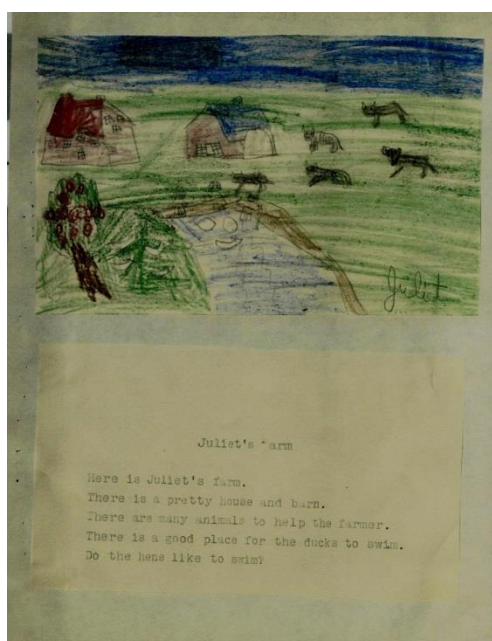 Juliet
Juliet's arm
Here is Juliet's farm.
There is a pretty house and barn.
There are many animals to help the farmer.
There is a good place for the ducks to swim.
Do the hens like to swim?